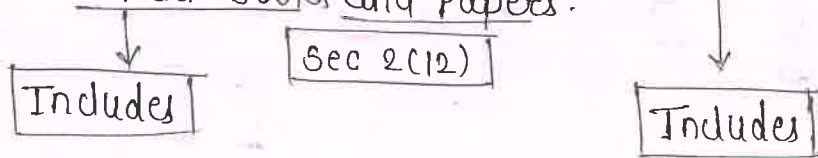 and Papers.
Sec 2(12)
Includes
Includes